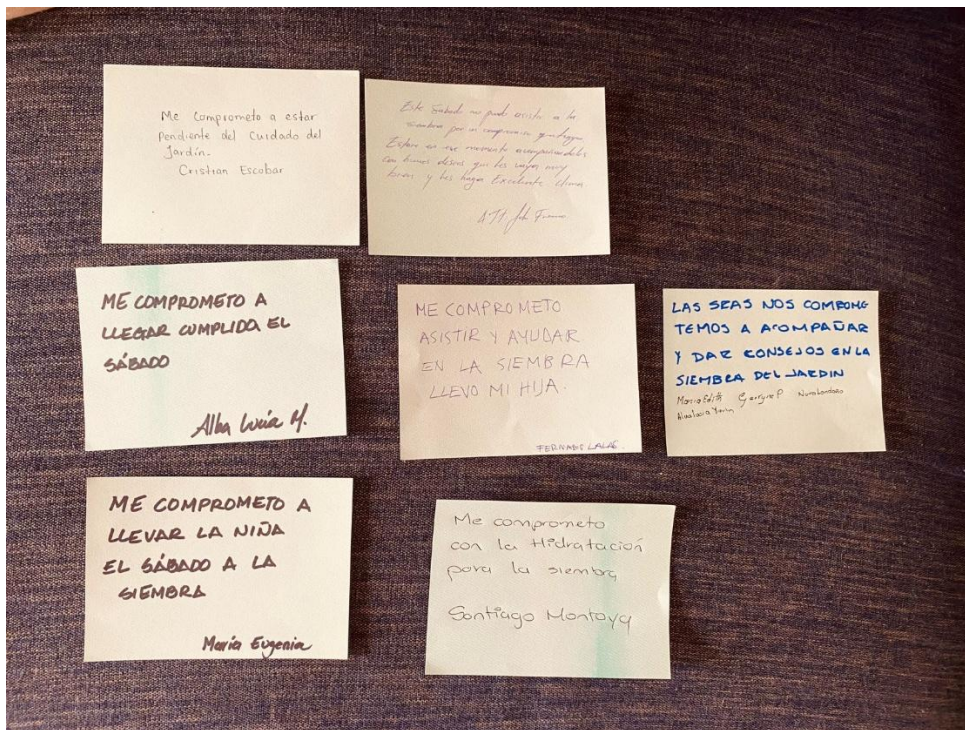 Me Comprometo a estar
Pendiente del Cuidado del
Jardín.
Cristian Escobar
Este Sabado no pude asistir a la
siembra por un compromiso q tengo
Estare en ese momento acompañandolos
con buenos deseos que les vaya muy
bien y les haga Excelente clima
ME COMPROMETO A
LLEGAR CUMPLIDA EL
SÁBADO
Alba Lucía M.
ME COMPROMETO
ASISTIR Y AYUDAR
EN LA SIEMBRA
LLEVO MI HIJA.
LAS SRAS NOS COMPROME
TEMOS A ACOMPAÑAR
Y DAR CONSEJOS EN LA
SIEMBRA DEL JARDIN
Maria Edith
ME COMPROMETO A
LLEVAR LA NIÑA
EL SÁBADO A LA
SIEMBRA
María Eugenia
Me comprometo
con la Hidratación
para la siembra
Santiago Montoya